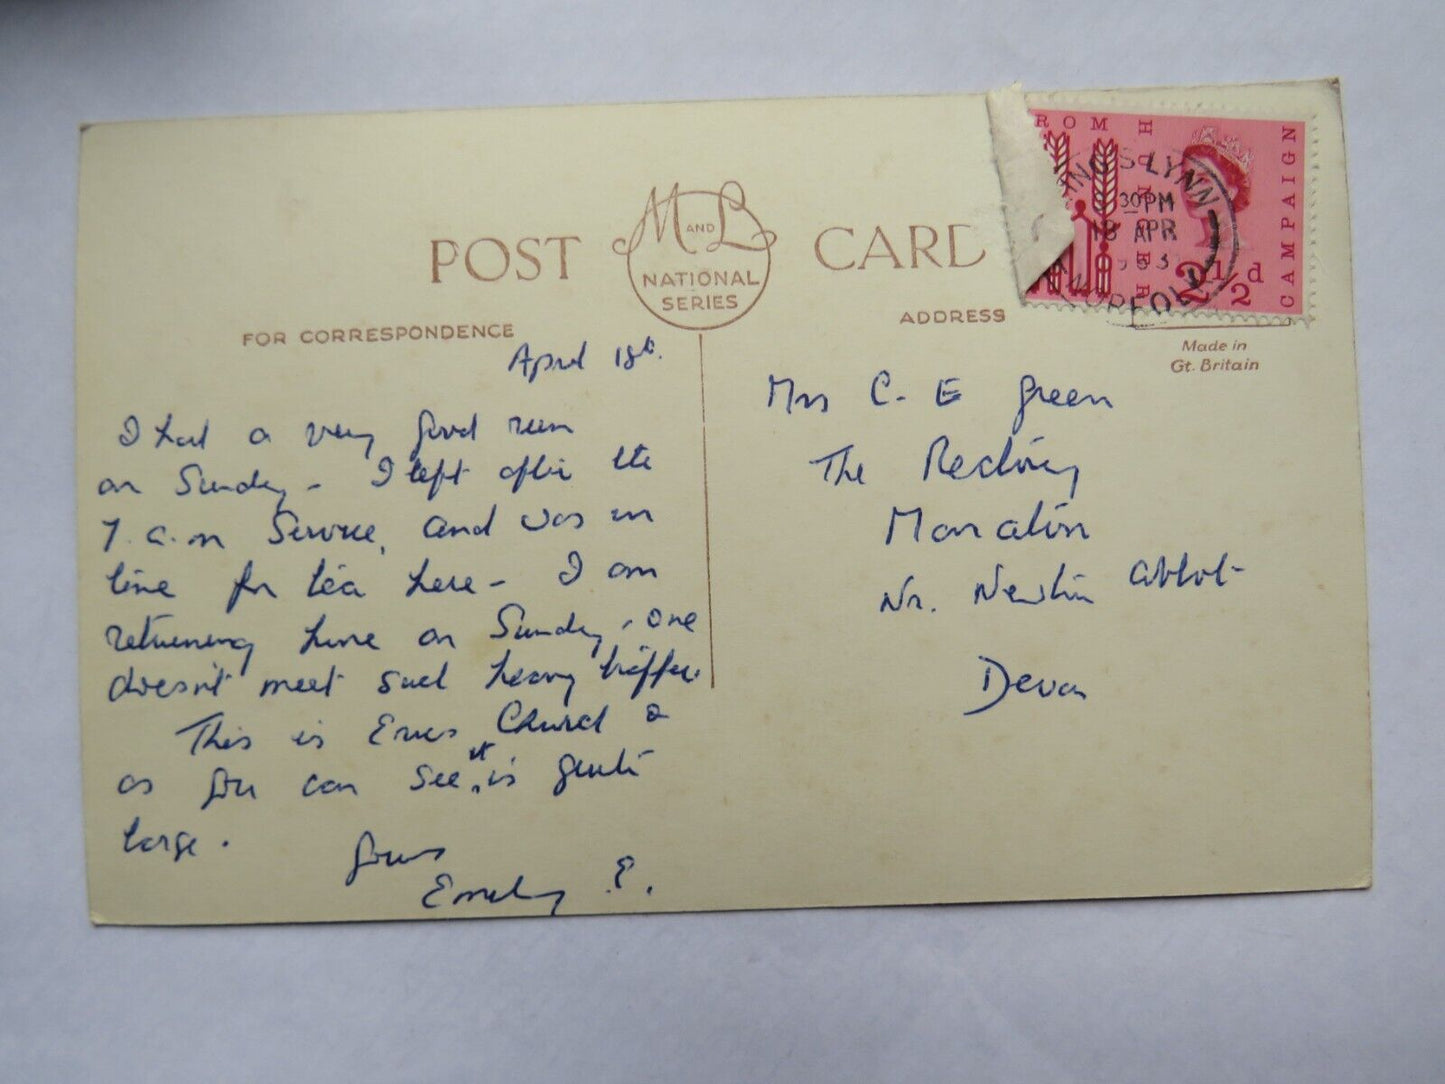 POST CARD
M AND L
NATIONAL
SERIES
FOR CORRESPONDENCE
ADDRESS
ROM HUNGER
CAMPAIGN
2½d
INGS LYNN
30PM
18 APR
NORFOLK
Made in
Gt. Britain
April 18th.
I had a very good run
on Sunday - I left after the
7. a.m Service, and was in
time for tea here - I am
returning home on Sunday, one
doesn't meet such heavy traffic.
This is Eves Church &
as you can see it is quite
large.
Yours
Emily E.
Mrs C. E Green
The Rectory
Manaton
Nr. Newton Abbot
Devon